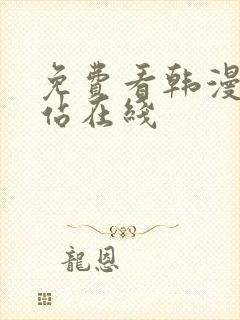 免費看韩漫
佔在綫
龍恩